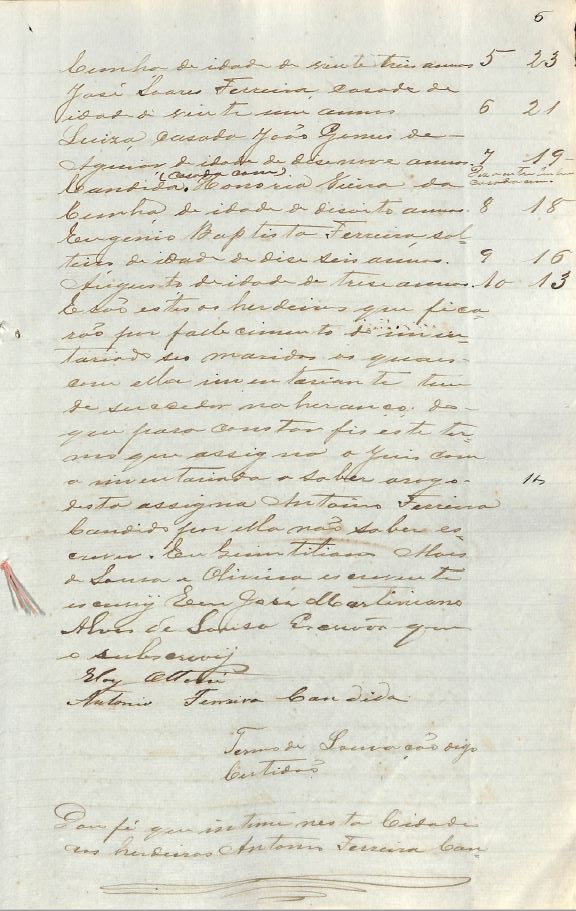 6
Cunha de idade de vinte tres annos 5 23
José Soares Ferreira casado de
idade de vinte um annos 6 21
Luiza casada João Gomes de
Aguiar de idade de desenove annos. 7 19
(casada com
Candida Honoria Vieira da
Cunha de idade de desoito annos 8 18
Eugenio Baptista Ferreira sol-
teiro de idade de dise seis annos. 9 16
Augusto de idade de trese annos. 10 13
E são estes os herdeiros que fica-
rão por fallecimento do inven-
tariado seo marido os quaes
com ella inventariante tem
de succeder na herança. do
que para constar fis este ter-
mo que assigna o Juis com
a inventariada a saber arogo
desta assigna Antonio Ferreira
Candido por ella não saber es-
crever. Eu Quintiliano Alves
de Sousa e Oliveira escrevente
escrevij E eu José Martiniano
Alves de Sousa Escrivão que
o subscrevij
Eloy Ottoni
Antonio Ferreira Candido
Termo de Louvação digo
Certidão
Dou fé que intimei nesta Cidade
aos herdeiros Antonio Ferreira Can-